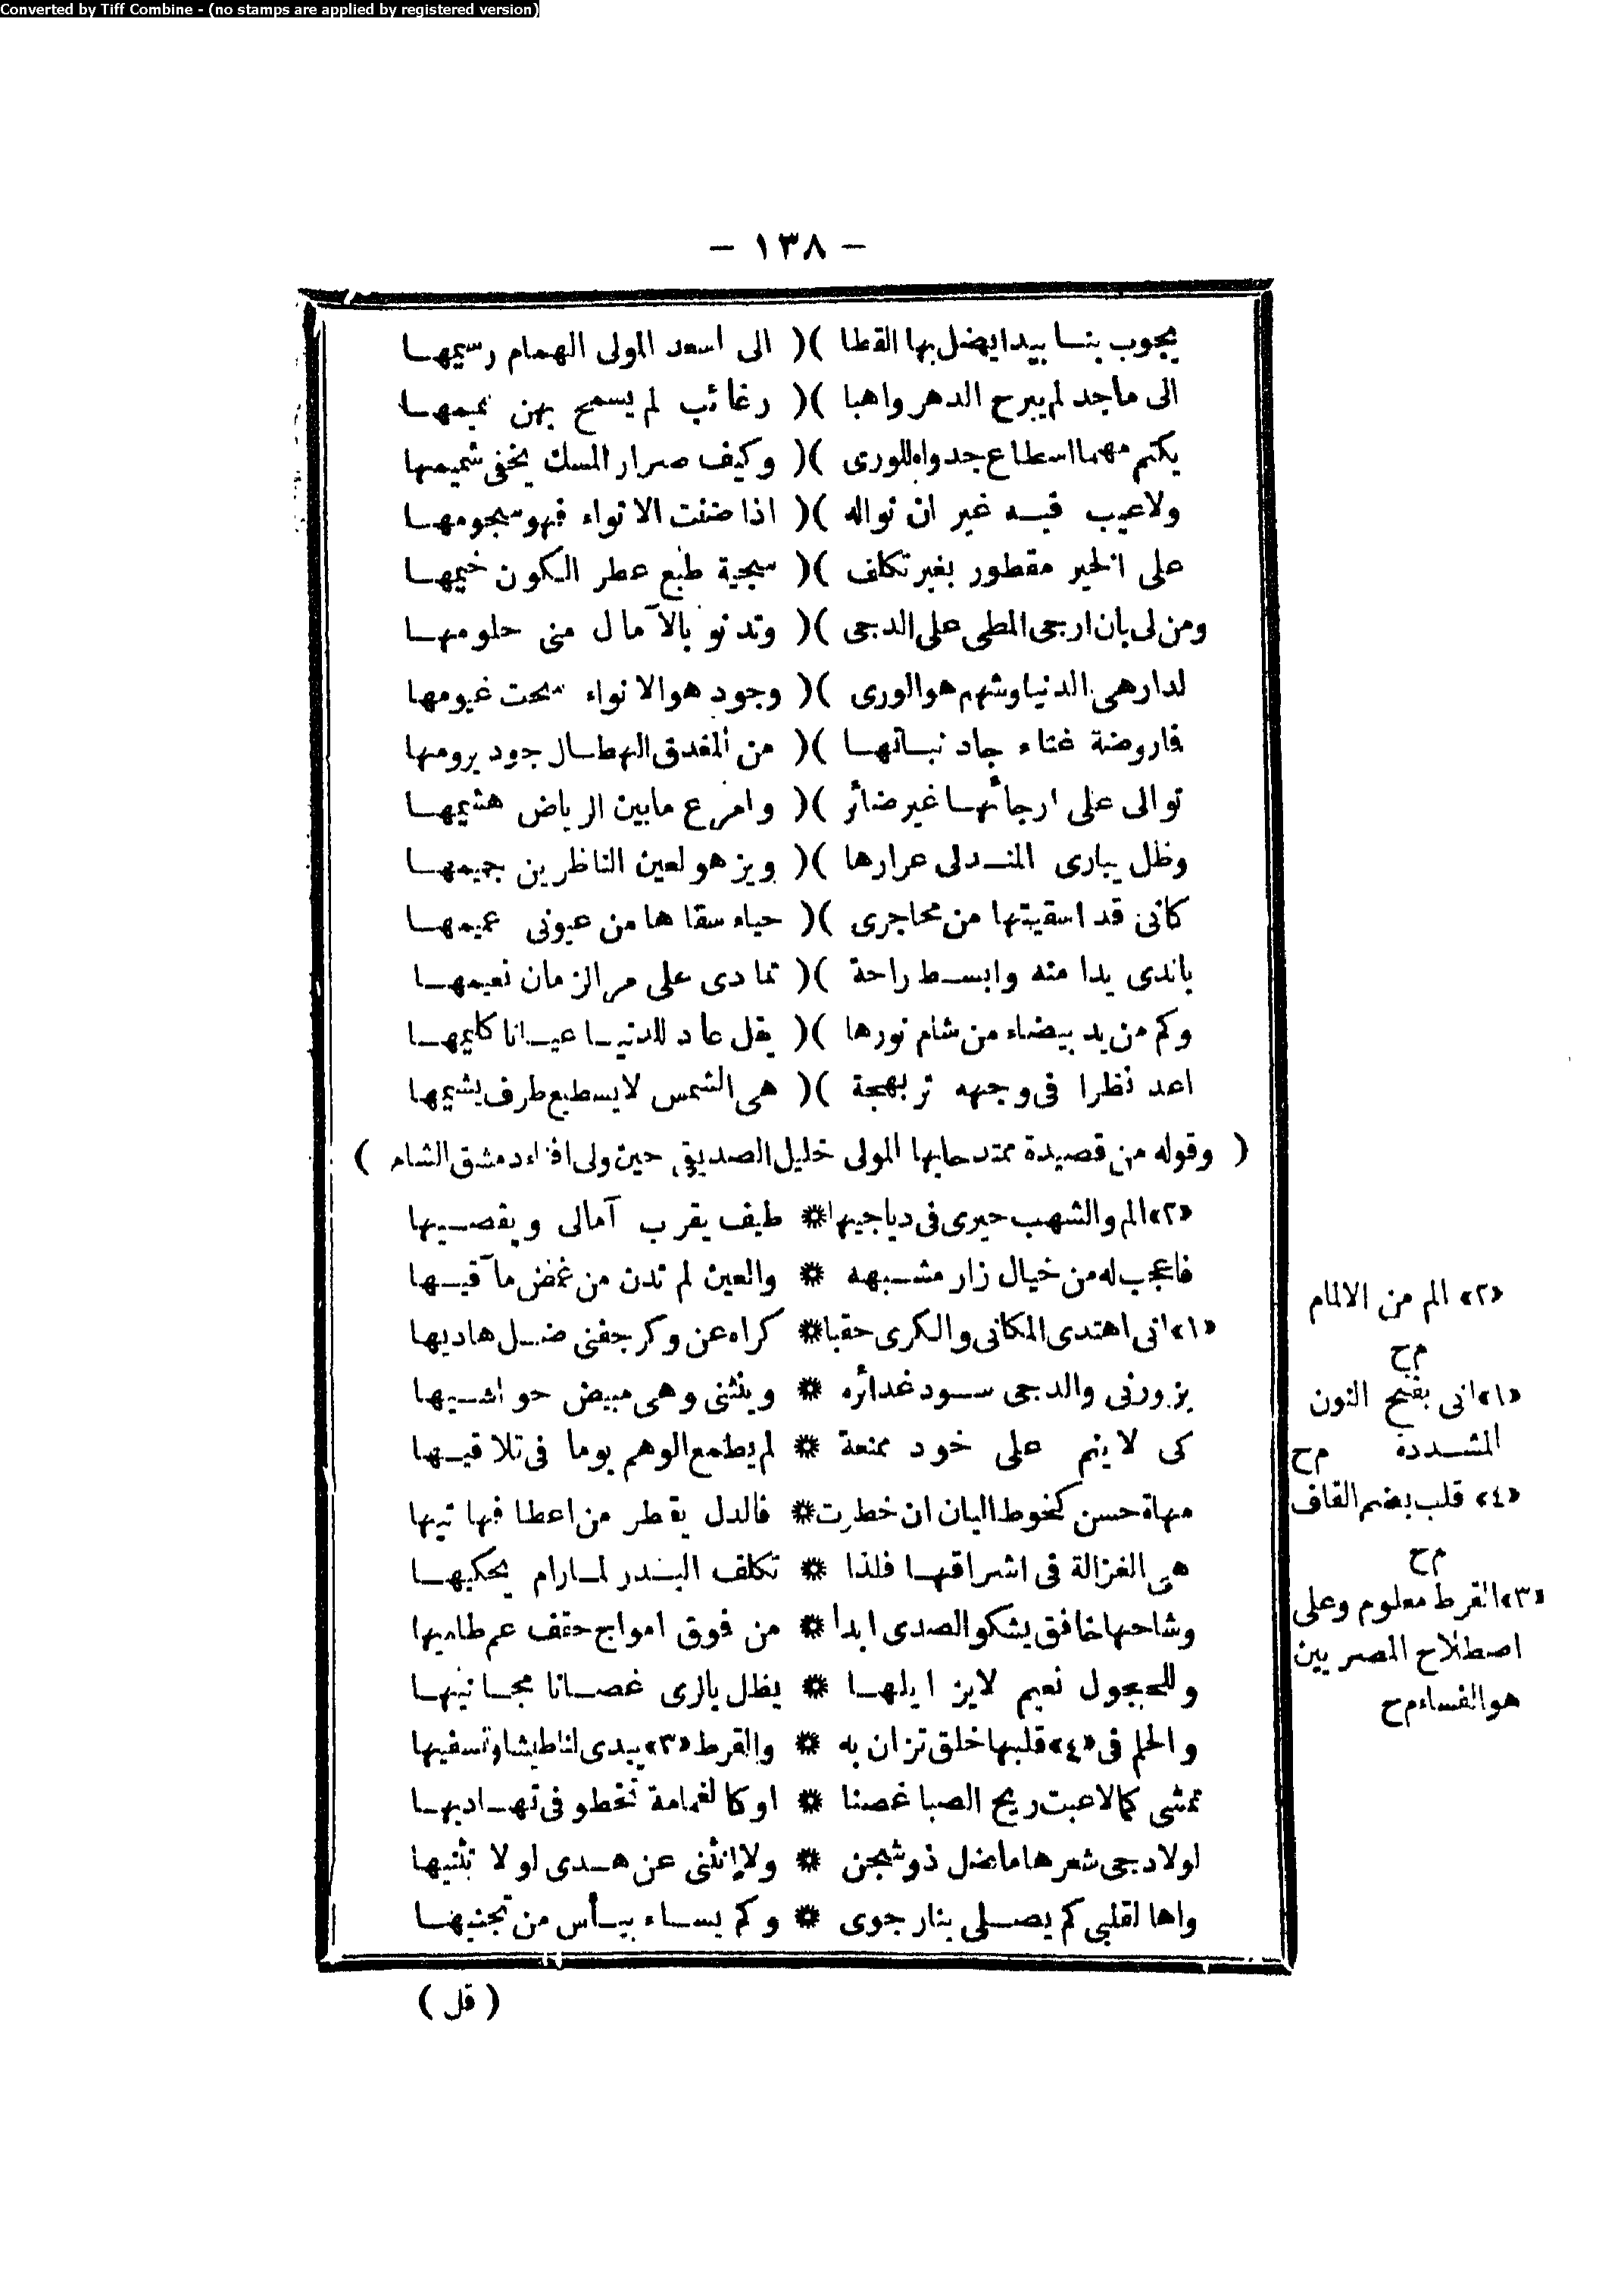 Converted by Tiff Combine - (no stamps are applied by registered version)
- ١٣٨ -
يجوب بنا بيدا يضل بها القطا )( الى اسعد المولى الهمام رسيمها
الى ماجد لم يبرح الدهر واهبا )( رغائب لم يسمح بهن عميمها
يكتم مهما اسطاع جدواه للورى )( وكيف صرار المسك يخفى شميمها
ولا عيب فيه غير ان نواله )( اذا ضنت الانواء فهو سجومها
على الخير مقطور بغير تكلف )( سجية طبع عطر الكون خيمها
ومن لى بان ارجى المطى على الدجى )( وتدنو بالآمال منى حلومها
لدار هى الدنيا وشهم هو الورى )( وجود هو الانواء سحت غيومها
فاروضة غناء جاد نباتها )( من المغدق الهطال جود يرومها
توالى على ارجائها غير ضائر )( وامرع مابين الرياض هشيمها
وظل يبارى المندلى عرارها )( ويزهو لعين الناظرين جميمها
كانى قد اسقيتها من محاجرى )( حياه سقاها من عيونى عميمها
باندى يدا منه وابسط راحة )( تمادى على مر الزمان نعيمها
وكم من يد بيضاء من شام نورها )( يقل عاد للدنيا عيانا كليمها
اعد نظرا فى وجهه تر بهجة )( هى الشمس لا يسطيع طرف يشيمها
( وقوله من قصيدة ممتدحابها المولى خليل الصديقى حين ولى افتاء دمشق الشام )
«٢» الم والشهب حيرى فى دياجيها * طيف يقرب آمالى ويقصيها
فاعجب له من خيال زار مشبهه * والعين لم تدن من غمض مآقيها
«١» انى اهتدى المكانى والكرى حقبا * كراه عن وكر جفنى ضل هاديها
يزورنى والدجى سود غدائره * وينثنى وهى مبيض حواشيها
كى لا ينم على خود ممنعة * لم يطمع الوهم يوما فى تلاقيها
مهاة حسن كخوط البان ان خطرت * فالدل يقطر من اعطافها تيها
هى الغزالة فى اشراقها فلذا * تكلف البدر لما رام يحكيها
وشاحها خافق يشكو الصدى ابدا * من فوق امواج حقف عم طاميها
وللحجول نعيم لا يزايلها * يظل بالرى غصانا مجانيها
والحلم فى «٤» قلبها خلق تزان به * والقرط «٣» يبدى لنا طيشا وتسفيها
تمشى كما لاعبت ريح الصبا غصنا * او كالغمامة تخطو فى تهاديها
لولا دجى شعرها ماضل ذو شجن * ولا انثنى عن هدى لولا تثنيها
واها لقلبى كم يصلى بنار جوى * وكم يساء بيأس من تجنيها
( قل )
«٢» الم من الالمام
م ح
«١» انى بفتح النون
المشدده م ح
«٤» قلب بضم القاف
م ح
«٣» القرط معلوم وعلى
اصطلاح المصريين
هو الفساء م ح